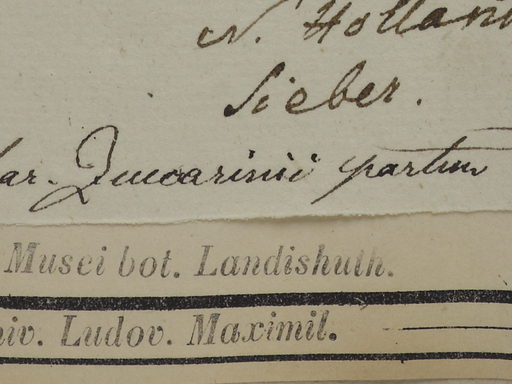 N. Holland
Sieber.
ar. Zuccarinii partim
Musei bot. Landishuth.
niv. Ludov. Maximil.